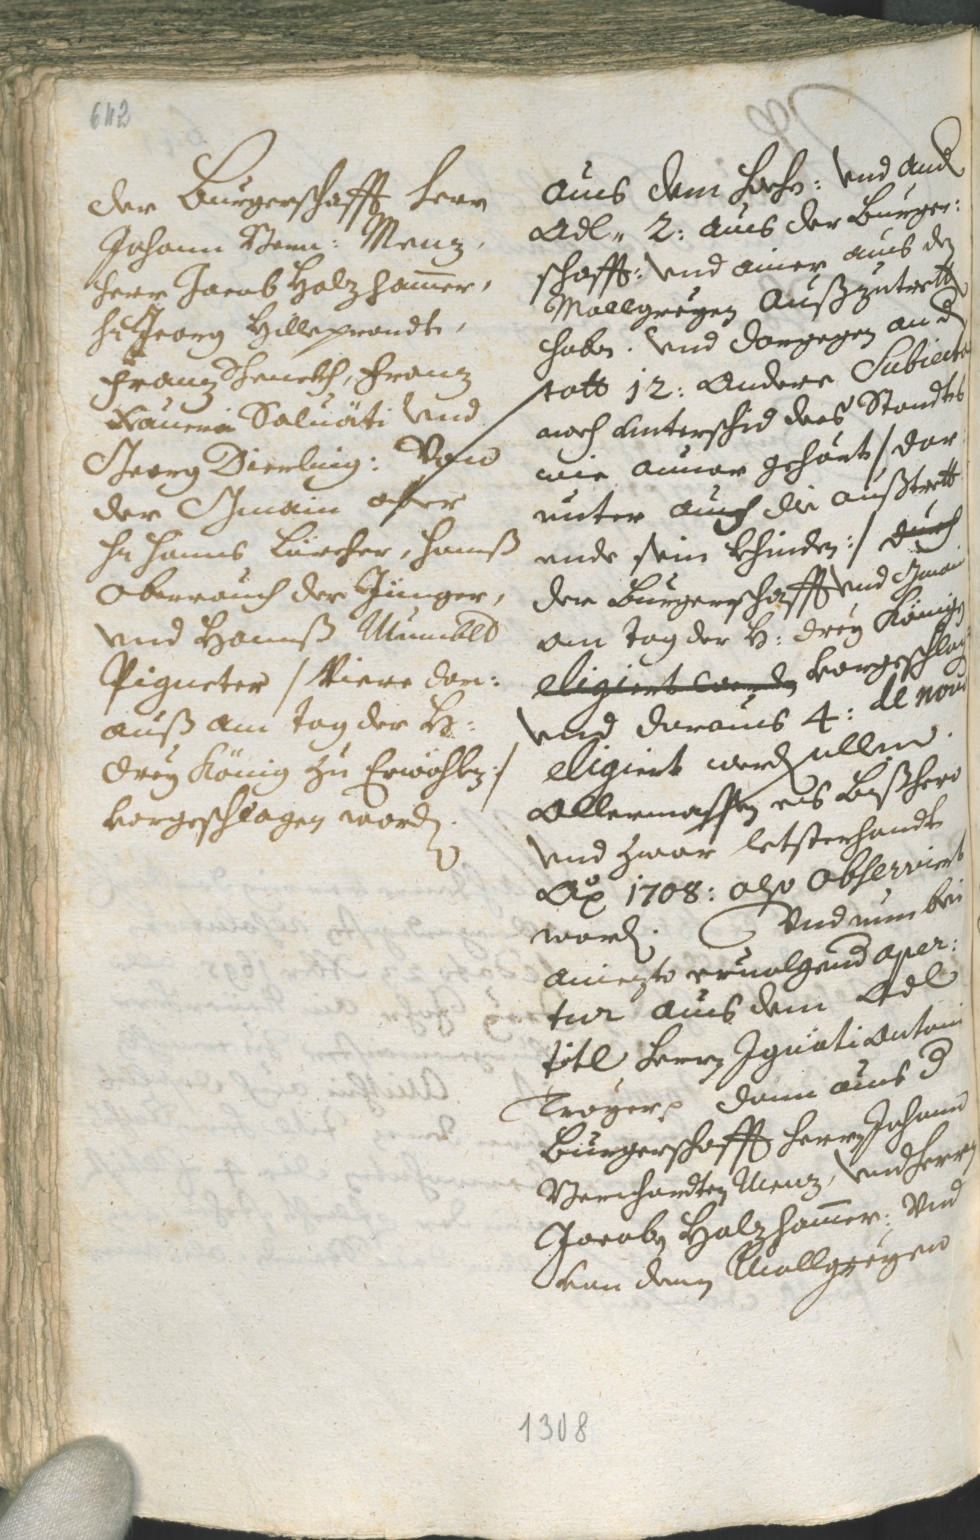 642
der Burgerschafft Herr
Johann Bern: Menz,
Herr Jacob Holzhamer,
Hr Georg Hilleprandt,
Franz Jeneth, Franz
Xaueri Saluäti Vnd
Georg Dierling: Von
der Gmain aber
Hr Hanns Lärcher, Hannß
Oberrauch der Jünger,
vnd Hannß
Pigneter / Viere dar:
auß am tag der H:
drey König zu Erwöhlen :/
vorgeschlagen worden.
aus dem hoch: vnd and
Adl 2: aus der Burger:
schafft: vnd ainer aus den
Mallgreyen außzutretten
haben. vnd dargegen an d
statt 12: andere Subiecta
nach unterschid des Standts
wie annor gehört / dar
unter auch die außtrett
ende sein khinden :/ durch
der Burgerschafft vnd Gmain
am tag der H: drey Königen
eligiert werden vorgeschlag
vnd daraus 4: de novo
eligiert werden sollen.
Allermassen es bißhero
vnd zwar letsterhandt
Ao 1708: also obserniert
worden. Vnd nun bei
aniezo eruolgend aper:
tur aus dem Adl
titl Herrn Ignati Antoni
Troyer, dann aus d
Burgerschafft Herrn Johann
Bernhardten Menz, vnd Herrn
Jacoben Holzhamer: Vnd
von denen Mallgreyen
1308